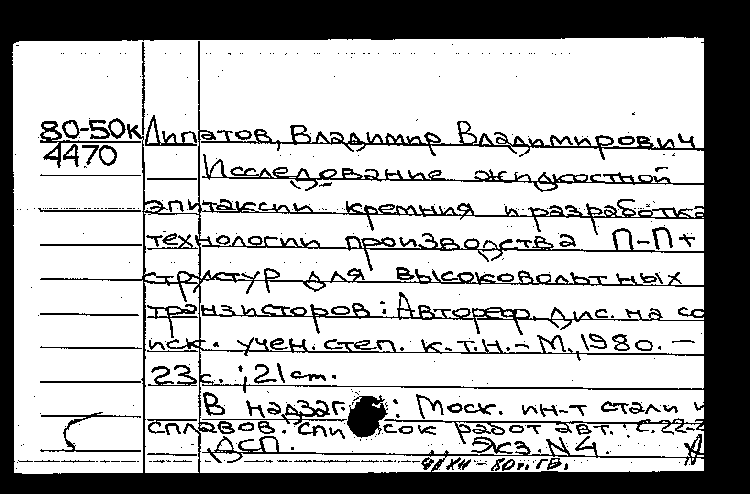 80-50к Липатов, Владимир Владимирович
4470 Исследование жидкостной
эпитаксии кремния и разработка
технологии производства П-П+
структур для высоковольтных
транзисторов: Автореф. дис. на со
иск. учен. степ. к.т.н. - М., 1980. -
23с. ; 21 см.
В надзаг.: Моск. ин-т стали и
сплавов. Список работ авт.: с. 22-2
ДСП. Экз. N4.